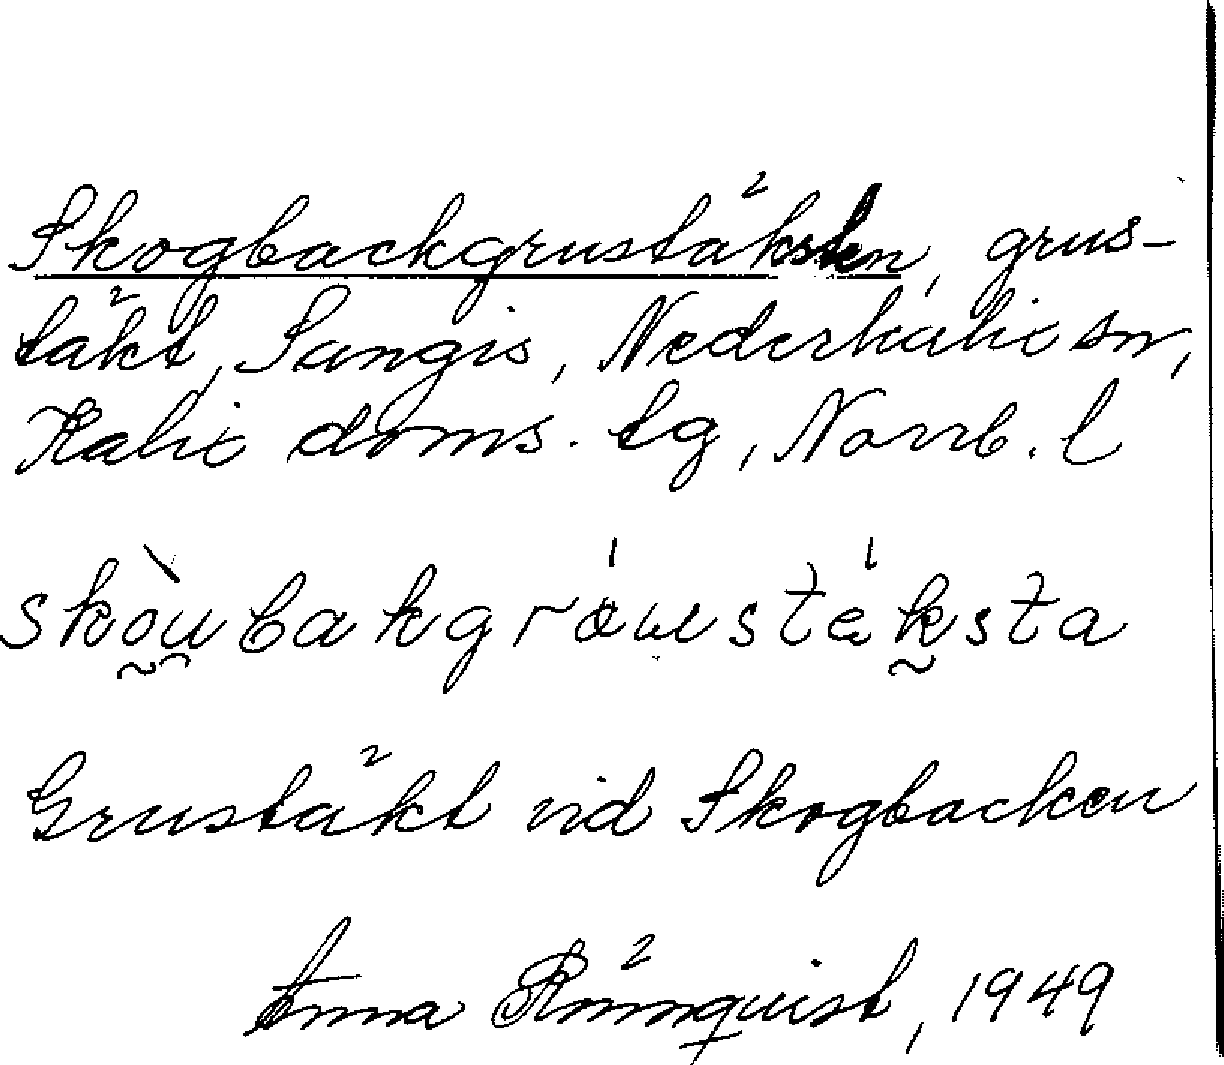 Skogbackgrustäksten, grus-
täkt, Sangis, Nederkalix sn,
Kalix doms. tg, Norrb. l
Grustäkt vid Skogbacken
Anna Rönnquist, 1949